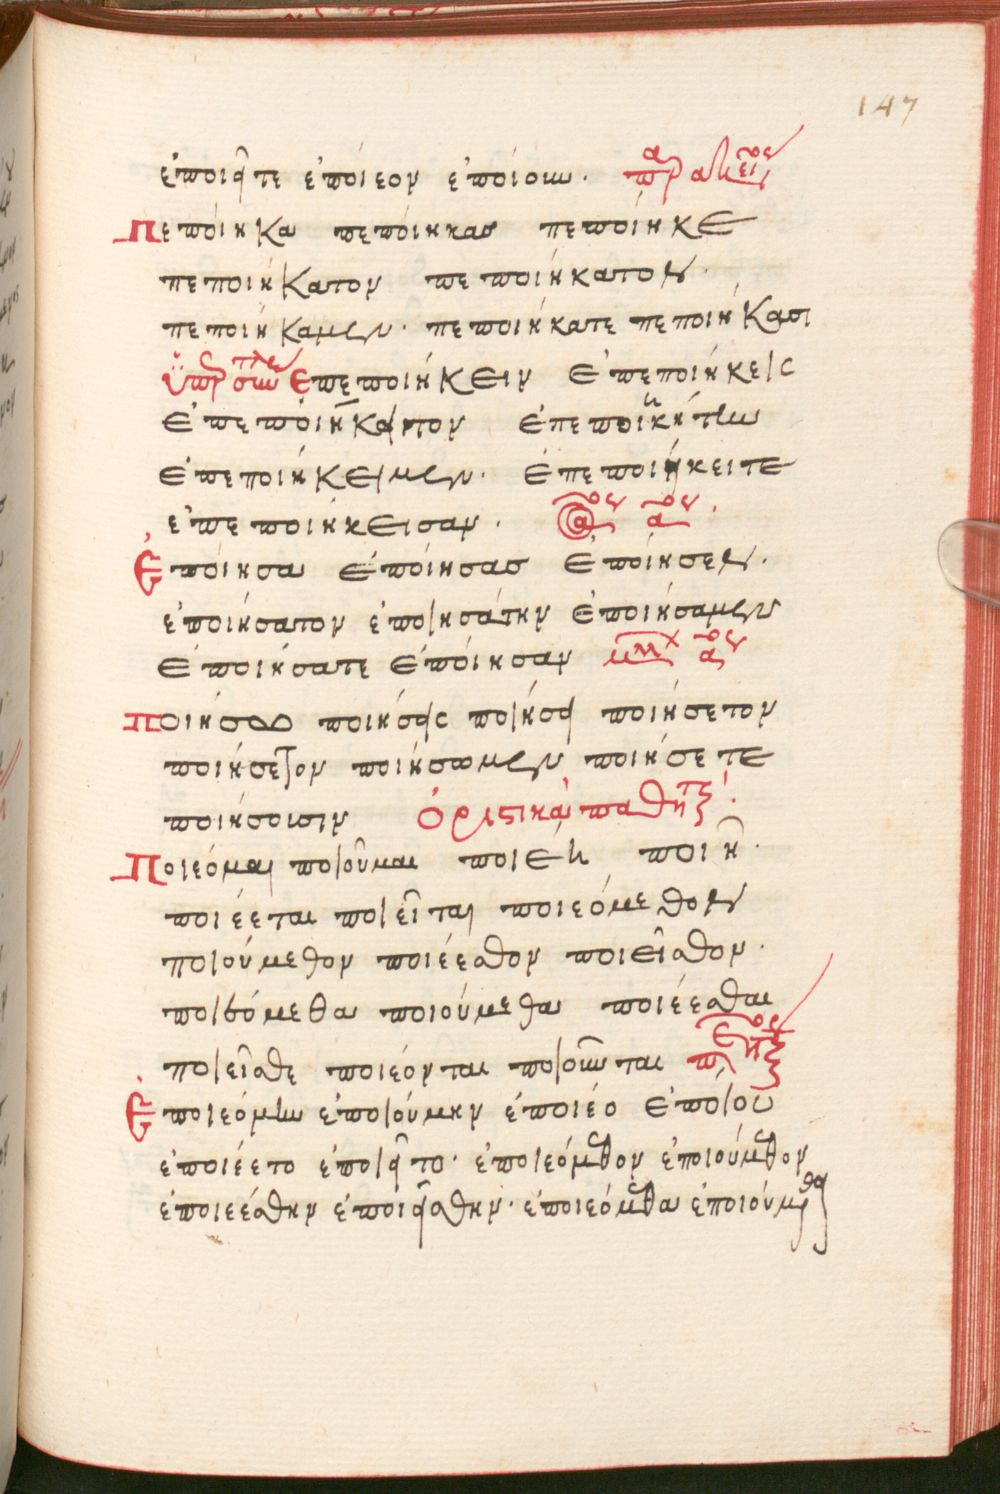 147
ἐποιεῖτε ἐποίεον ἐποίουν.
Πεποίηκα πεποίηκας πεποίηκε
πεποιήκατον πεποιήκατον.
πεποιήκαμεν· πεποιήκατε πεποιήκασι
ἐπεποιήκειν ἐπεποιήκεις
ἐπεποιήκειμεν. ἐπεποιήκειτε
ἐπεποιήκεισαν.
Ἐποίησα ἐποίησας ἐποίησεν.
ἐποιήσατον ἐποιησάτην ἐποιήσαμεν
ἐποιήσατε ἐποίησαν
ποιήσω ποιήσεις ποιήσει ποιήσετον
ποιήσετον ποιήσομεν ποιήσετε
ποιήσουσιν Ὁριστικὰ παθητικ
Ποιέομαι ποιοῦμαι ποιέῃ ποιῇ.
ποιέεται ποιεῖται ποιεόμεθον
ποιούμεθον ποιέεσθον ποιεῖσθον.
ποιεόμεθα ποιούμεθα ποιέεσθαι
ποιεῖσθε ποιέονται ποιοῦνται
Ἐποιεόμην ἐποιούμην ἐποιέο ἐποιοῦ
ἐποιέετο ἐποιεῖτο· ἐποιεόμεθον ἐποιούμεθον
ἐποιεέσθην ἐποιείσθην· ἐποιεόμεθα ἐποιούμεθα